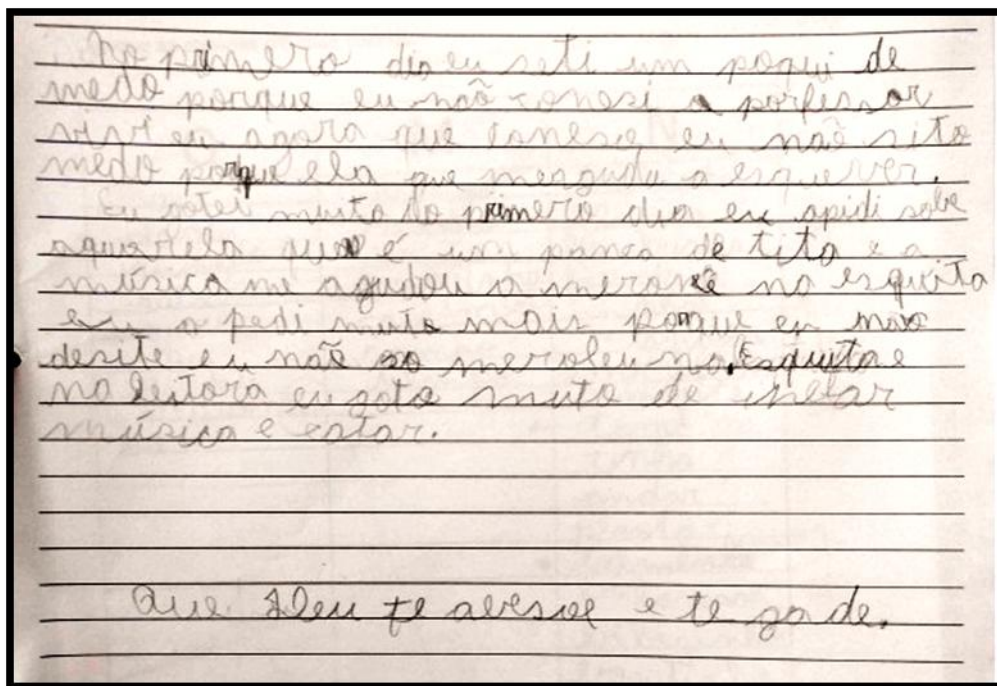 No primero dia eu seti um poqui de
medo porque eu não conesi a porfessor
eu agora que coneso eu não sito
medo porque ela que meaguda a esquever.
Eu gotei muito do primero dia eu apidi sobe
aquarela que é um panco de tita e a
música me agudou a na esquita
eu a pedi muto mais porque eu não
desite eu não so na esquita e
na leitora eu goto muto de
música e catar.
Que Deu te abesoe e te gade.